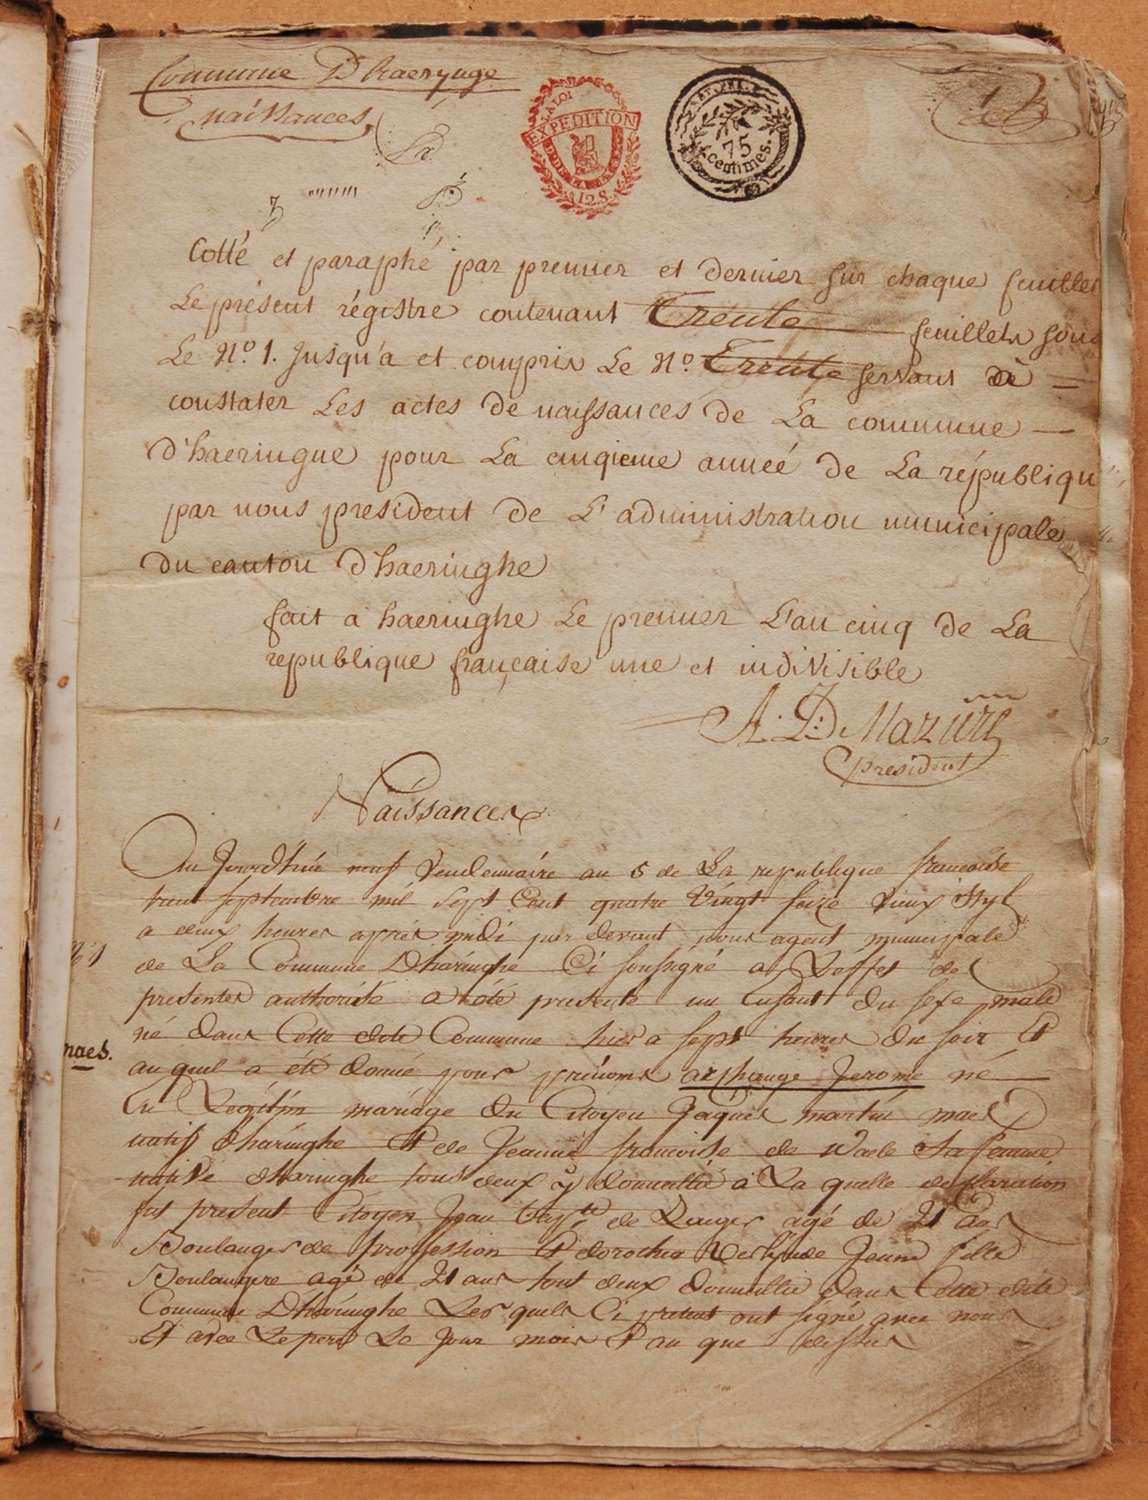 Commune D'haerynge
naissances
LA LOI
EXPEDITION
12 S.
75
centimes.
Cotté et paraphé par premier et dernier sur chaque feuillet
Le présent régistre contenant Trente feuillets sous
Le N.o 1. Jusqu'a et compris Le N.o Trente servant à
constater Les actes de naissances de La commune
d'haeringue pour La cinqieme anneé de La républiqu
par nous president de L'administration municipale
du canton d'haeringhe
fait a haeringhe Le premier L'an cinq de La
republique française une et indivisible
A. D: Mazure
president
Naissances
Au Jourd'huie neuf Vendemaire an 5 de La republique francoise
septembre mil Sept Cent quatre Vingt seize Vieux Styl
a deux heures aprés midi par devant nous agent municipale
N.o 1
de La Commune D'haringhe Ci soussigné a L'effet de
presenter authorisé a été presenté un Enfant du sexe male
né dans Cette dite Commune hier a sept heures du soir Et
naes.
auquel a été donné pour prénoms archange Jerome né
En Legitim mariage du Citoyen Jaques martin maes
natif d'haringhe Et de Jeanne francoise de Waele Sa femme
native d'haringhe tous deux y domicilié a La quelle declaration
fut present Citoyen Jean Bap.te de Langer agé de 21 ans
Boulanger de proffession Et dorothea Jeune fille
Boulangere agé de 21 ans tout deux domicilié dans Cette dite
Commune D'haringhe Les quels Ci present ont signé avec nous
Et avec Le pere Le Jour mois Et an que dessus